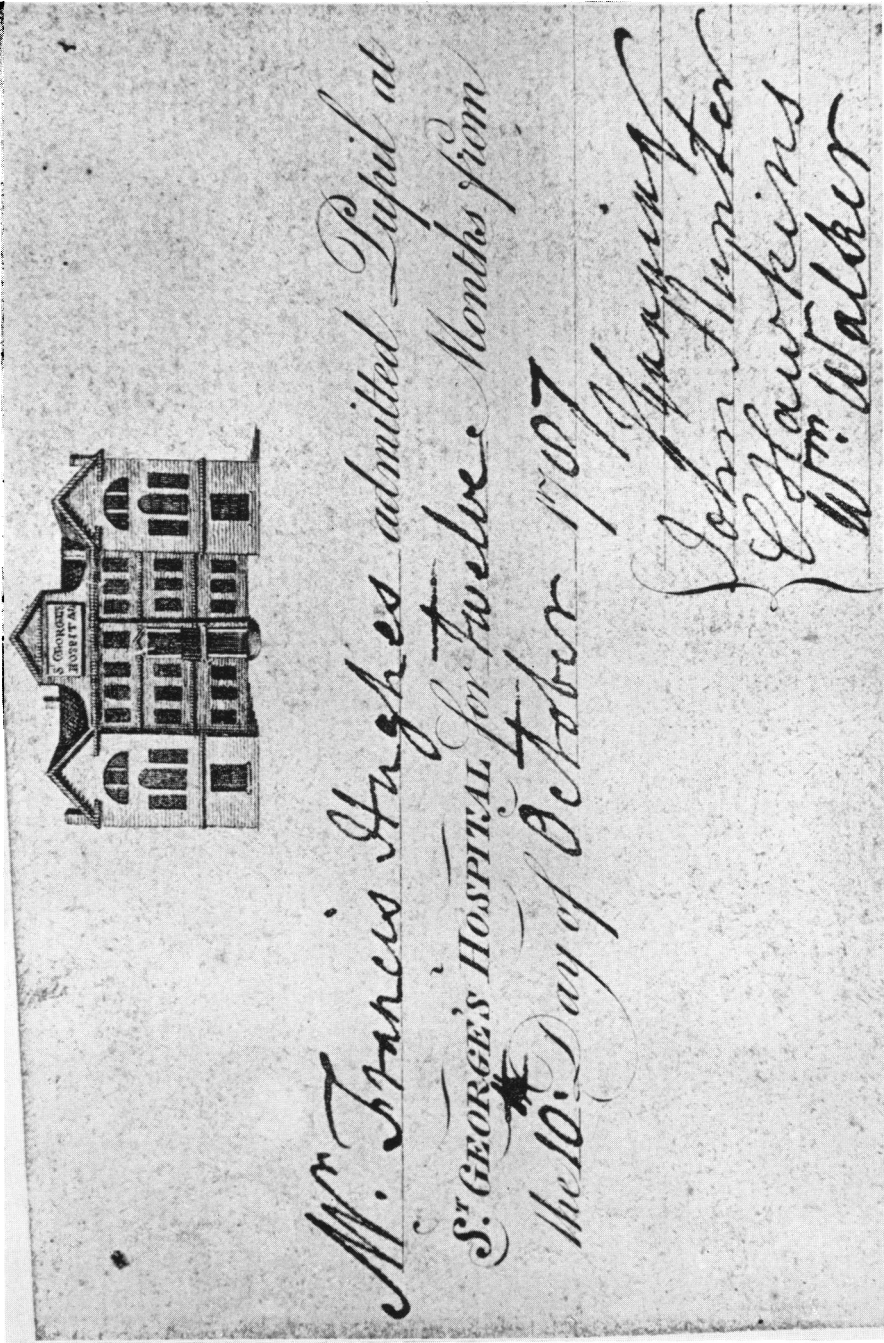 St GEORGE'S
HOSPITAL
Mr. Francis Hughes admitted Pupil at
St. GEORGE'S HOSPITAL for Twelve Months from
the 10th Day of October 1787
John Hunter
C Hawkins
Wm. Walker